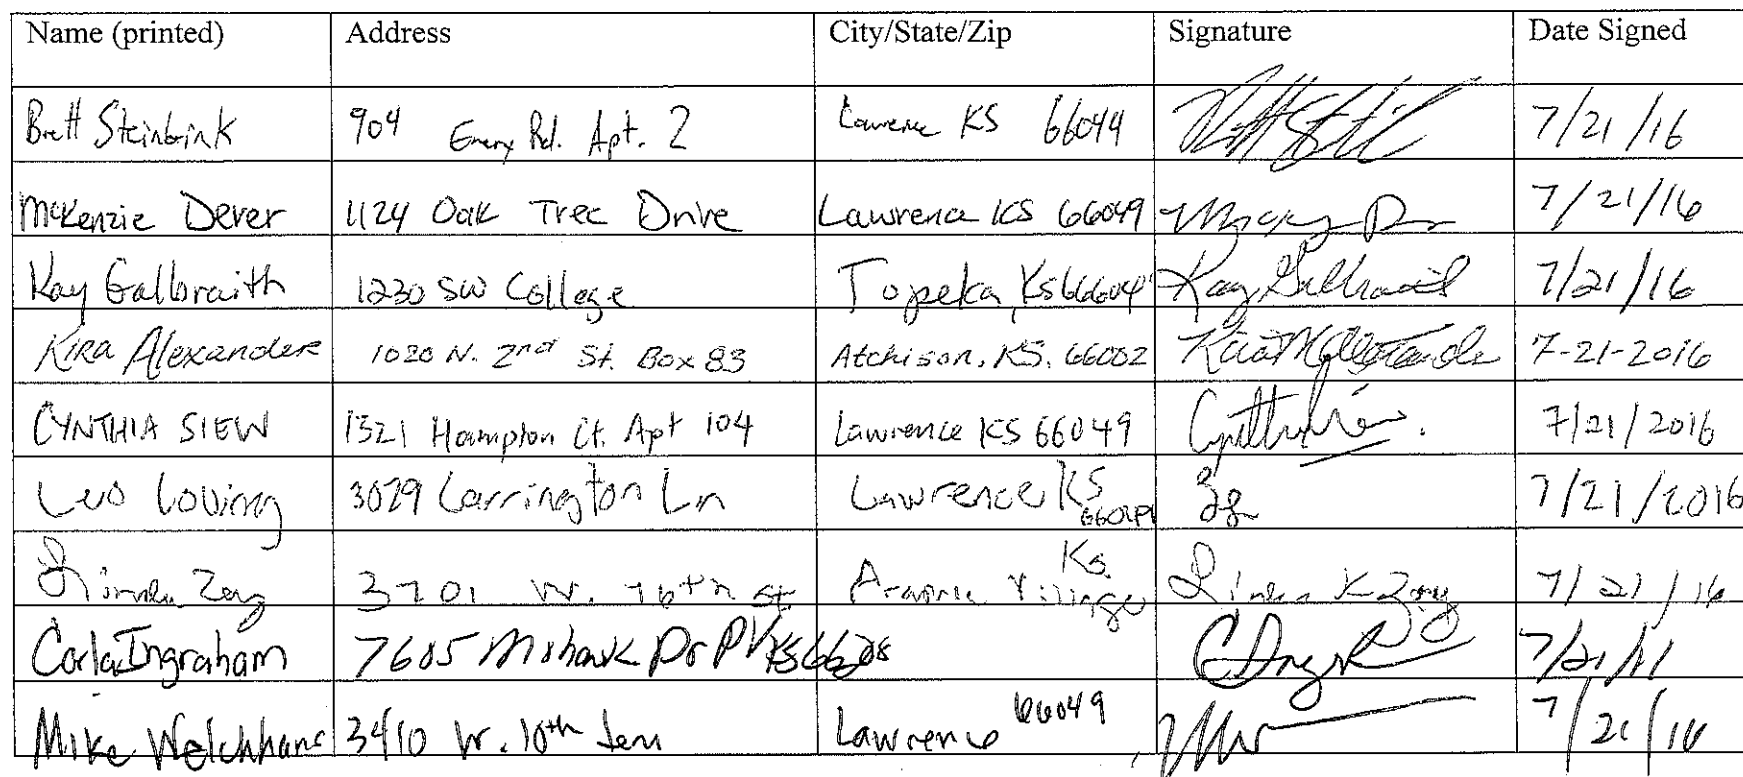 Name (printed) Address City/State/Zip Signature Date Signed
Brett Steinbrink 904 Emery Rd. Apt. 2 Lawrence KS 66044 7/21/16
McKenzie Dever 1124 Oak Tree Drive Lawrence KS 66049 7/21/16
Kay Galbraith 1230 SW College Topeka, Ks 66604 Kay Galbraith 7/21/16
Kira Alexander 1020 N. 2nd St. Box 83 Atchison, KS. 66002 7-21-2016
CYNTHIA SIEW 1321 Hampton Ct. Apt 104 Lawrence KS 66049 7/21/2016
Leo Loving 3029 Carrington Ln Lawrence KS 66049 7/21/2016
Linda 3701 W. 76th st. Prairie Village Ks. Linda K 7/21/16
Carla Ingraham 7605 Mohawk Dr PV KS 66208 7/21/
Mike Welchhans 3410 W. 10th Terr Lawrence 66049 7/21/16